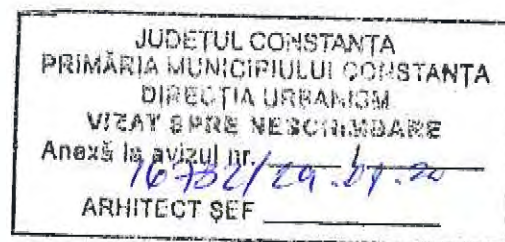 JUDEȚUL CONSTANȚA
PRIMĂRIA MUNICIPIULUI CONSTANȚA
DIRECȚIA URBANISM
VIZAT SPRE NESCHIMBARE
Anexă la avizul nr. /
ARHITECT ȘEF